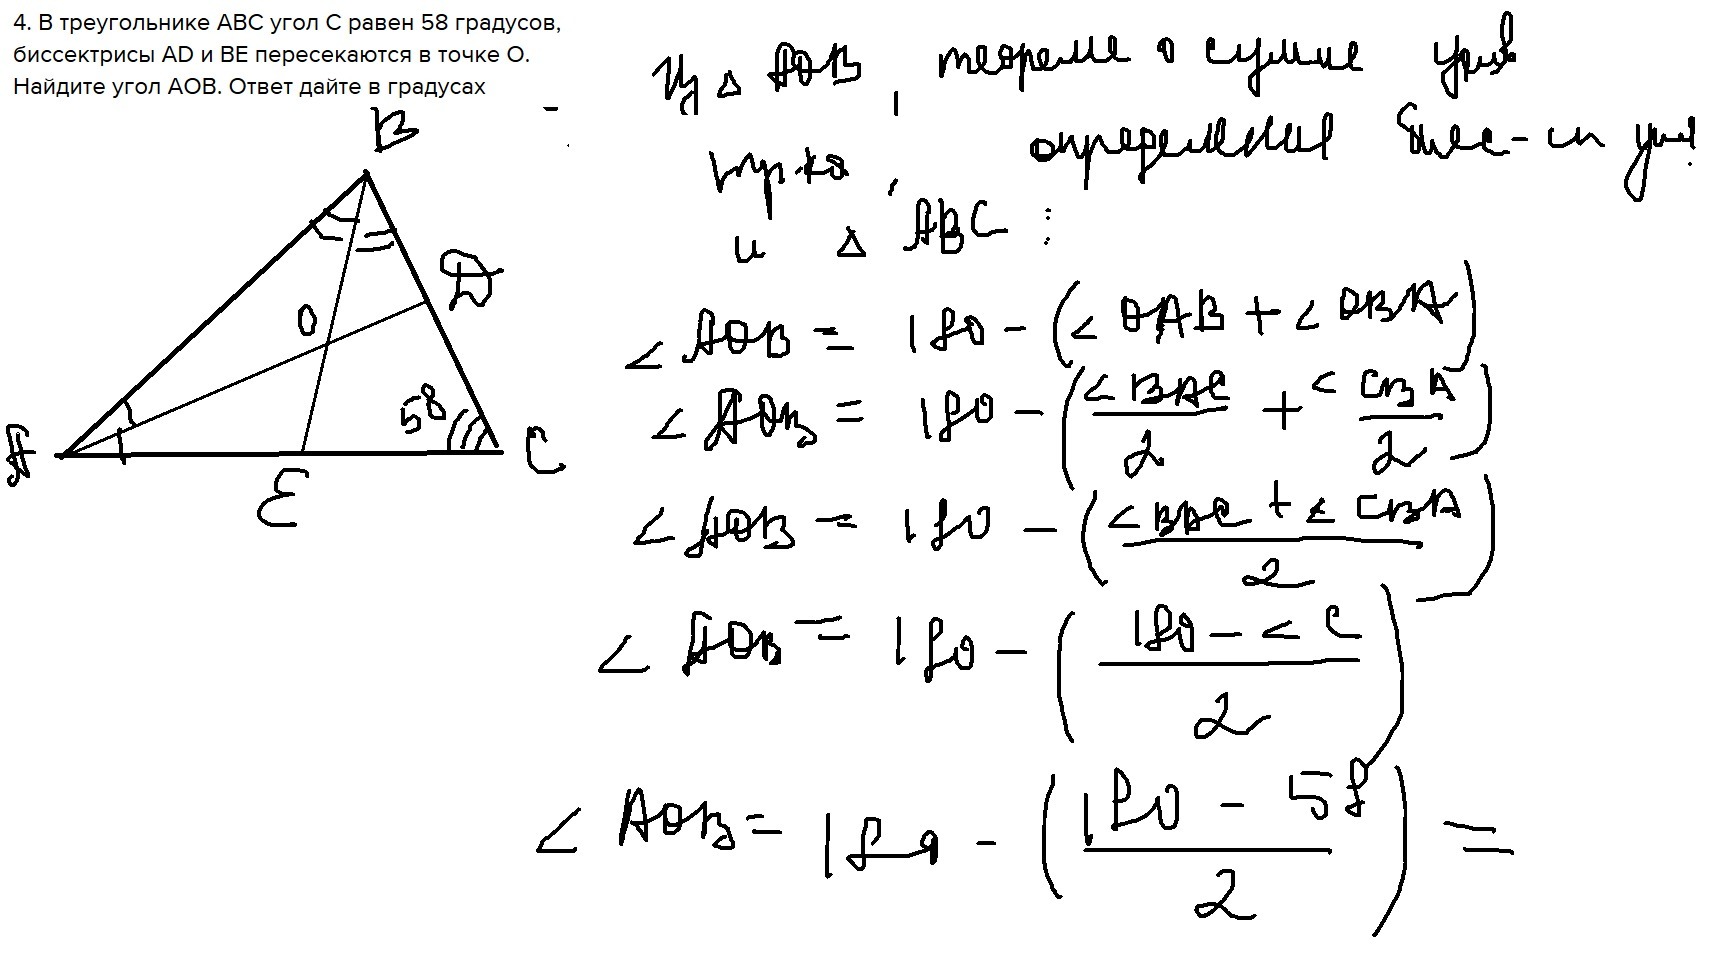 4. В треугольнике ABC угол C равен 58 градусов,
биссектрисы AD и BE пересекаются в точке O.
Найдите угол AOB. Ответ дайте в градусах
Из △ AOB, теореме о сумме углов
тр-ка, определения бисс-сы угла
и △ ABC :
B
D
O
58
A
C
E
∠ AOB = 180 - (∠ OAB + ∠ OBA)
∠ AOB = 180 - (∠ BAC / 2 + ∠ CBA / 2)
∠ AOB = 180 - (∠ BAC + ∠ CBA / 2)
∠ AOB = 180 - (180 - ∠ C / 2)
∠ AOB = 180 - (180 - 58 / 2) =